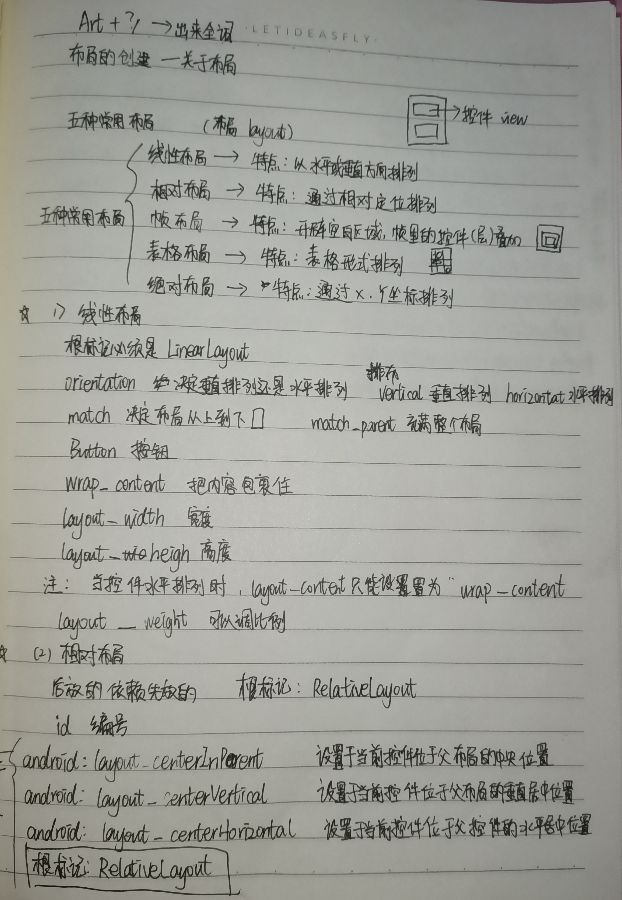 Art + ?/ → 出来全词
·LETIDEASFLY·
布局的创建 — 关于布局
五种常用布局 (布局 layout) → 控件 view
五种常用布局
线性布局 → 特点：以水平或垂直方向排列
相对布局 → 特点：通过相对定位排列
帧布局 → 特点：开辟空白区域，帧里的控件(层)叠加
表格布局 → 特点：表格形式排列
绝对布局 → 特点：通过x.y坐标排列
☆ 1) 线性布局
根标记必须是 LinearLayout
排布
orientation 决定垂直排列还是水平排列 vertical 垂直排列 horizontat 水平排列
match 决定布局从上到下 match_parent 充满整个布局
Button 按钮
wrap_content 把内容包裹住
layout_width 宽度
layout_heigh 高度
注：当控件水平排列时，layout_content只能设置置为 wrap_content
layout_weight 可以调比例
☆ (2) 相对布局
后放的依赖先放的 根标记：RelativeLayout
id 编号
android：layout_centerInParent 设置于当前控件位于父布局的中央位置
android：layout_centerVertical 设置于当前控件位于父布局的垂直居中位置
android：layout_centerHorizontal 设置于当前控件位于父控件的水平居中位置
根标记：RelativeLayout